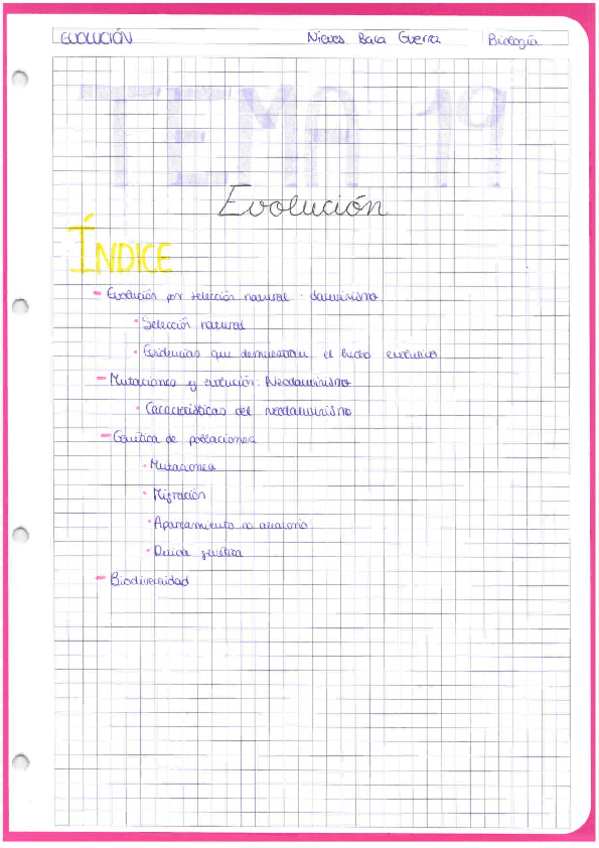 EVOLUCIÓN Nieves Baca Guerra Biología
TEMA 19
Evolución
ÍNDICE
- Evolución por selección natural: darwinismo.
· Selección natural
· Evidencias que demuestran el hecho evolutivo
- Mutaciones y evolución: Neodarwinismo
· Características del neodarwinismo
- Genética de poblaciones
· Mutaciones
· Migración
· Apareamiento no aleatorio
· Deriva genética
- Biodiversidad